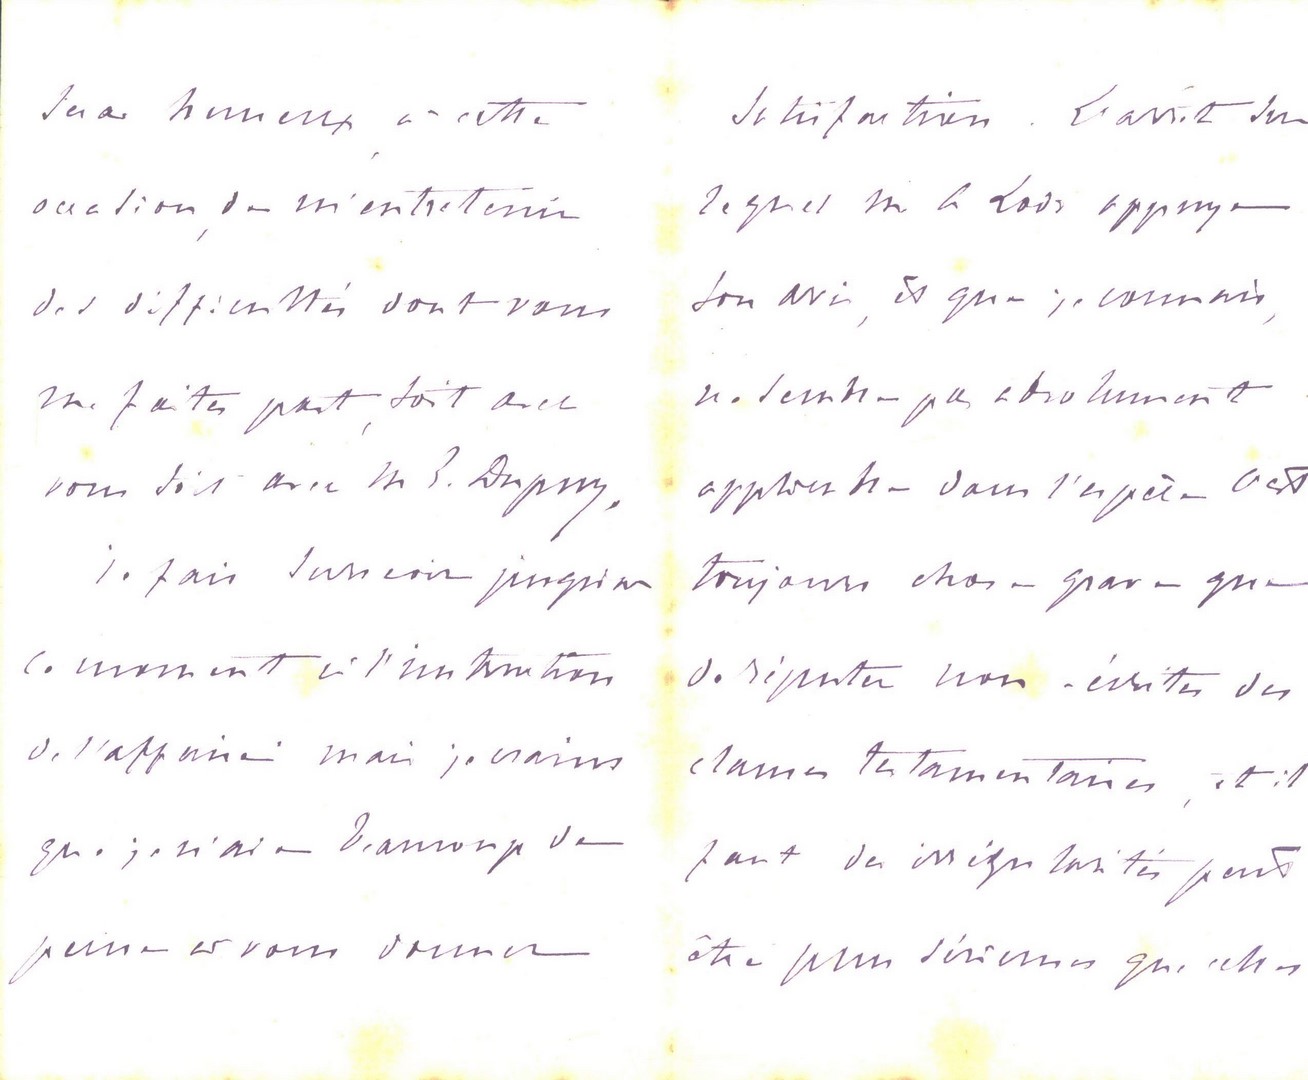 serai heureux, à cette
occasion, de m'entretenir
des difficultés dont vous
me faites part, soit avec
vous soit avec M. E. Dupuy.
Je fais surseoir jusqu'à
ce moment à l'instruction
de l'affaire mais je crains
que je n'aie beaucoup de
peine à vous donner
satisfaction. L'arrêt sur
lequel M. appuye
son avis, et que je connais,
ne semble pas absolument
applicable dans l'espèce. C'est
toujours chose grave que
de réputer non-écrites des
clauses testamentaires, et il
faut des irrégularités peut
être plus sérieuses que celles